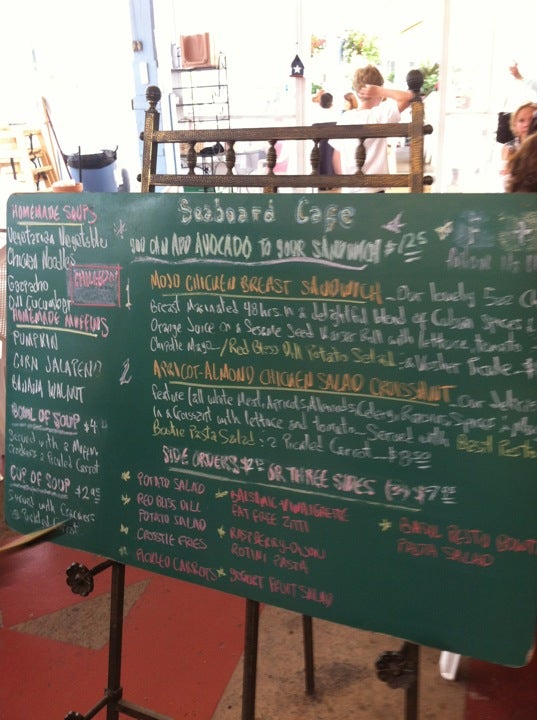 Seaboard Cafe
YOU CAN ADD AVOCADO TO YOUR SANDWICH $1.25
HOMEMADE SOUPS
Vegetarian Vegetable
Chicken Noodles
Gazpacho
Dill Cucumber
HOMEMADE MUFFINS
PUMPKIN
CORN JALAPENO
BANANA WALNUT
BOWL OF SOUP $4
Served with a Muffin
Crackers & Pickled Carrot
CUP OF SOUP $2.95
Served with Crackers
& Pickled Carrot
1 MOJO CHICKEN BREAST SANDWICH Our lovely 5oz
Breast Marinated 48 hrs in a delightful blend of Cuban Spices
Orange Juice on a Sesame Seed Kaiser Roll with lettuce, tomato
Chipotle Mayo / Red Bliss Dill Potato Salad & Kosher Pickle
2 APRICOT-ALMOND CHICKEN SALAD CROISSANT Our
Feature (all white Meat, Apricots, Almonds, Celery, Raisins, Spices
in a Croissant with lettuce and tomato. Served with Basil Pesto
Bowtie Pasta Salad & Pickled Carrot
SIDE ORDERS OR THREE SIDES (3) $7
POTATO SALAD
RED BLISS DILL
POTATO SALAD
CROSSTIE FRIES
PICKLED CARROTS
BALSAMIC-VINAIGRETTE
FAT FREE ZITI
RASPBERRY-DIJON
ROTINI PASTA
YOGURT FRUIT SALAD
BASIL PESTO BOWTIE
PASTA SALAD